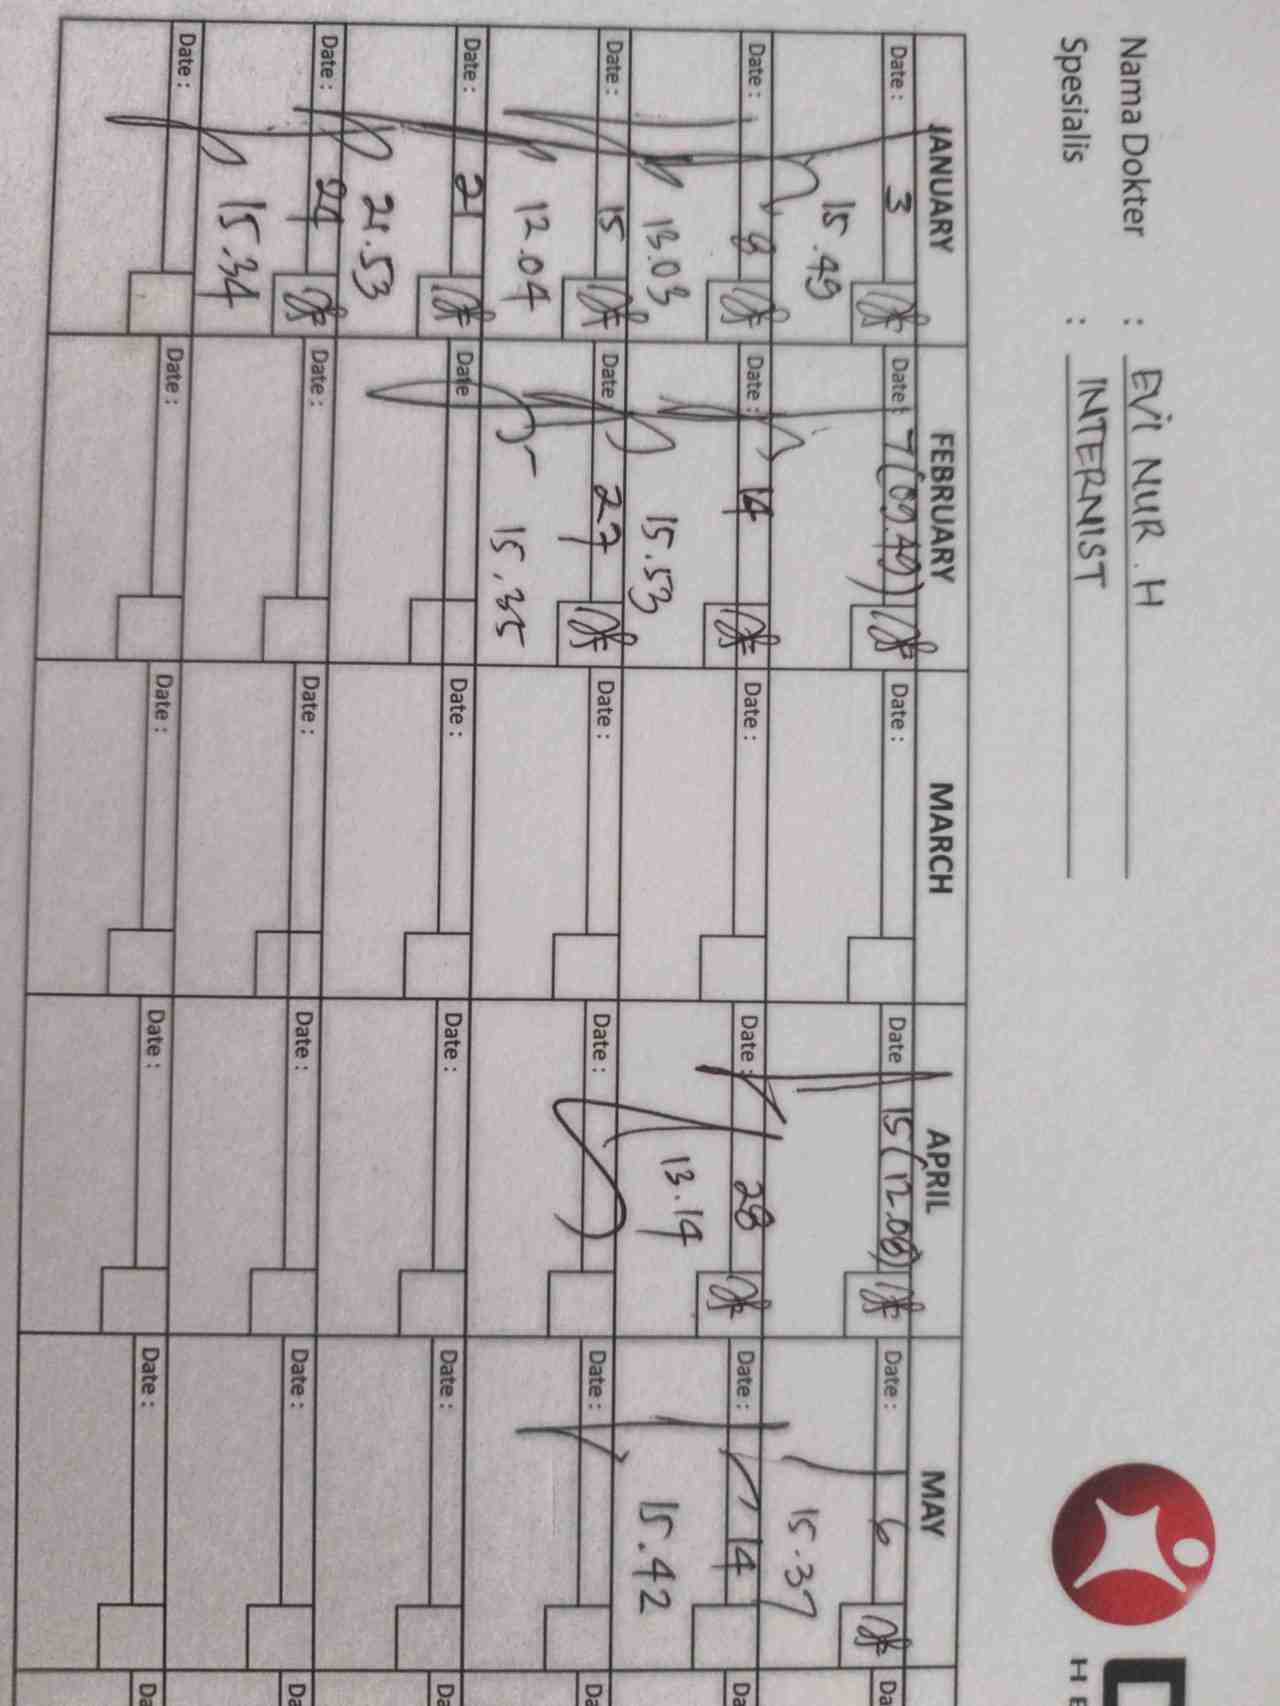 Nama Dokter : EVI NUR . H
Spesialis : INTERNIST
HE
JANUARY FEBRUARY MARCH APRIL MAY
Date : 3 Date : 7 (09.49) Date : Date 15 (12.08) Date : 6 Da
15.49 15.37
Date : 8 Date : 14 Date : Date : 28 Date : 14 Da
13.03 15.53 13.14 15.42
Date : 15 Date 27 Date : Date : Date : Da
12.04 15.35
Date : 21 Date Date : Date : Date : Da
21.53
Date : 24 Date : Date : Date : Date : Da
15.34
Date : Date : Date : Date : Date : Da